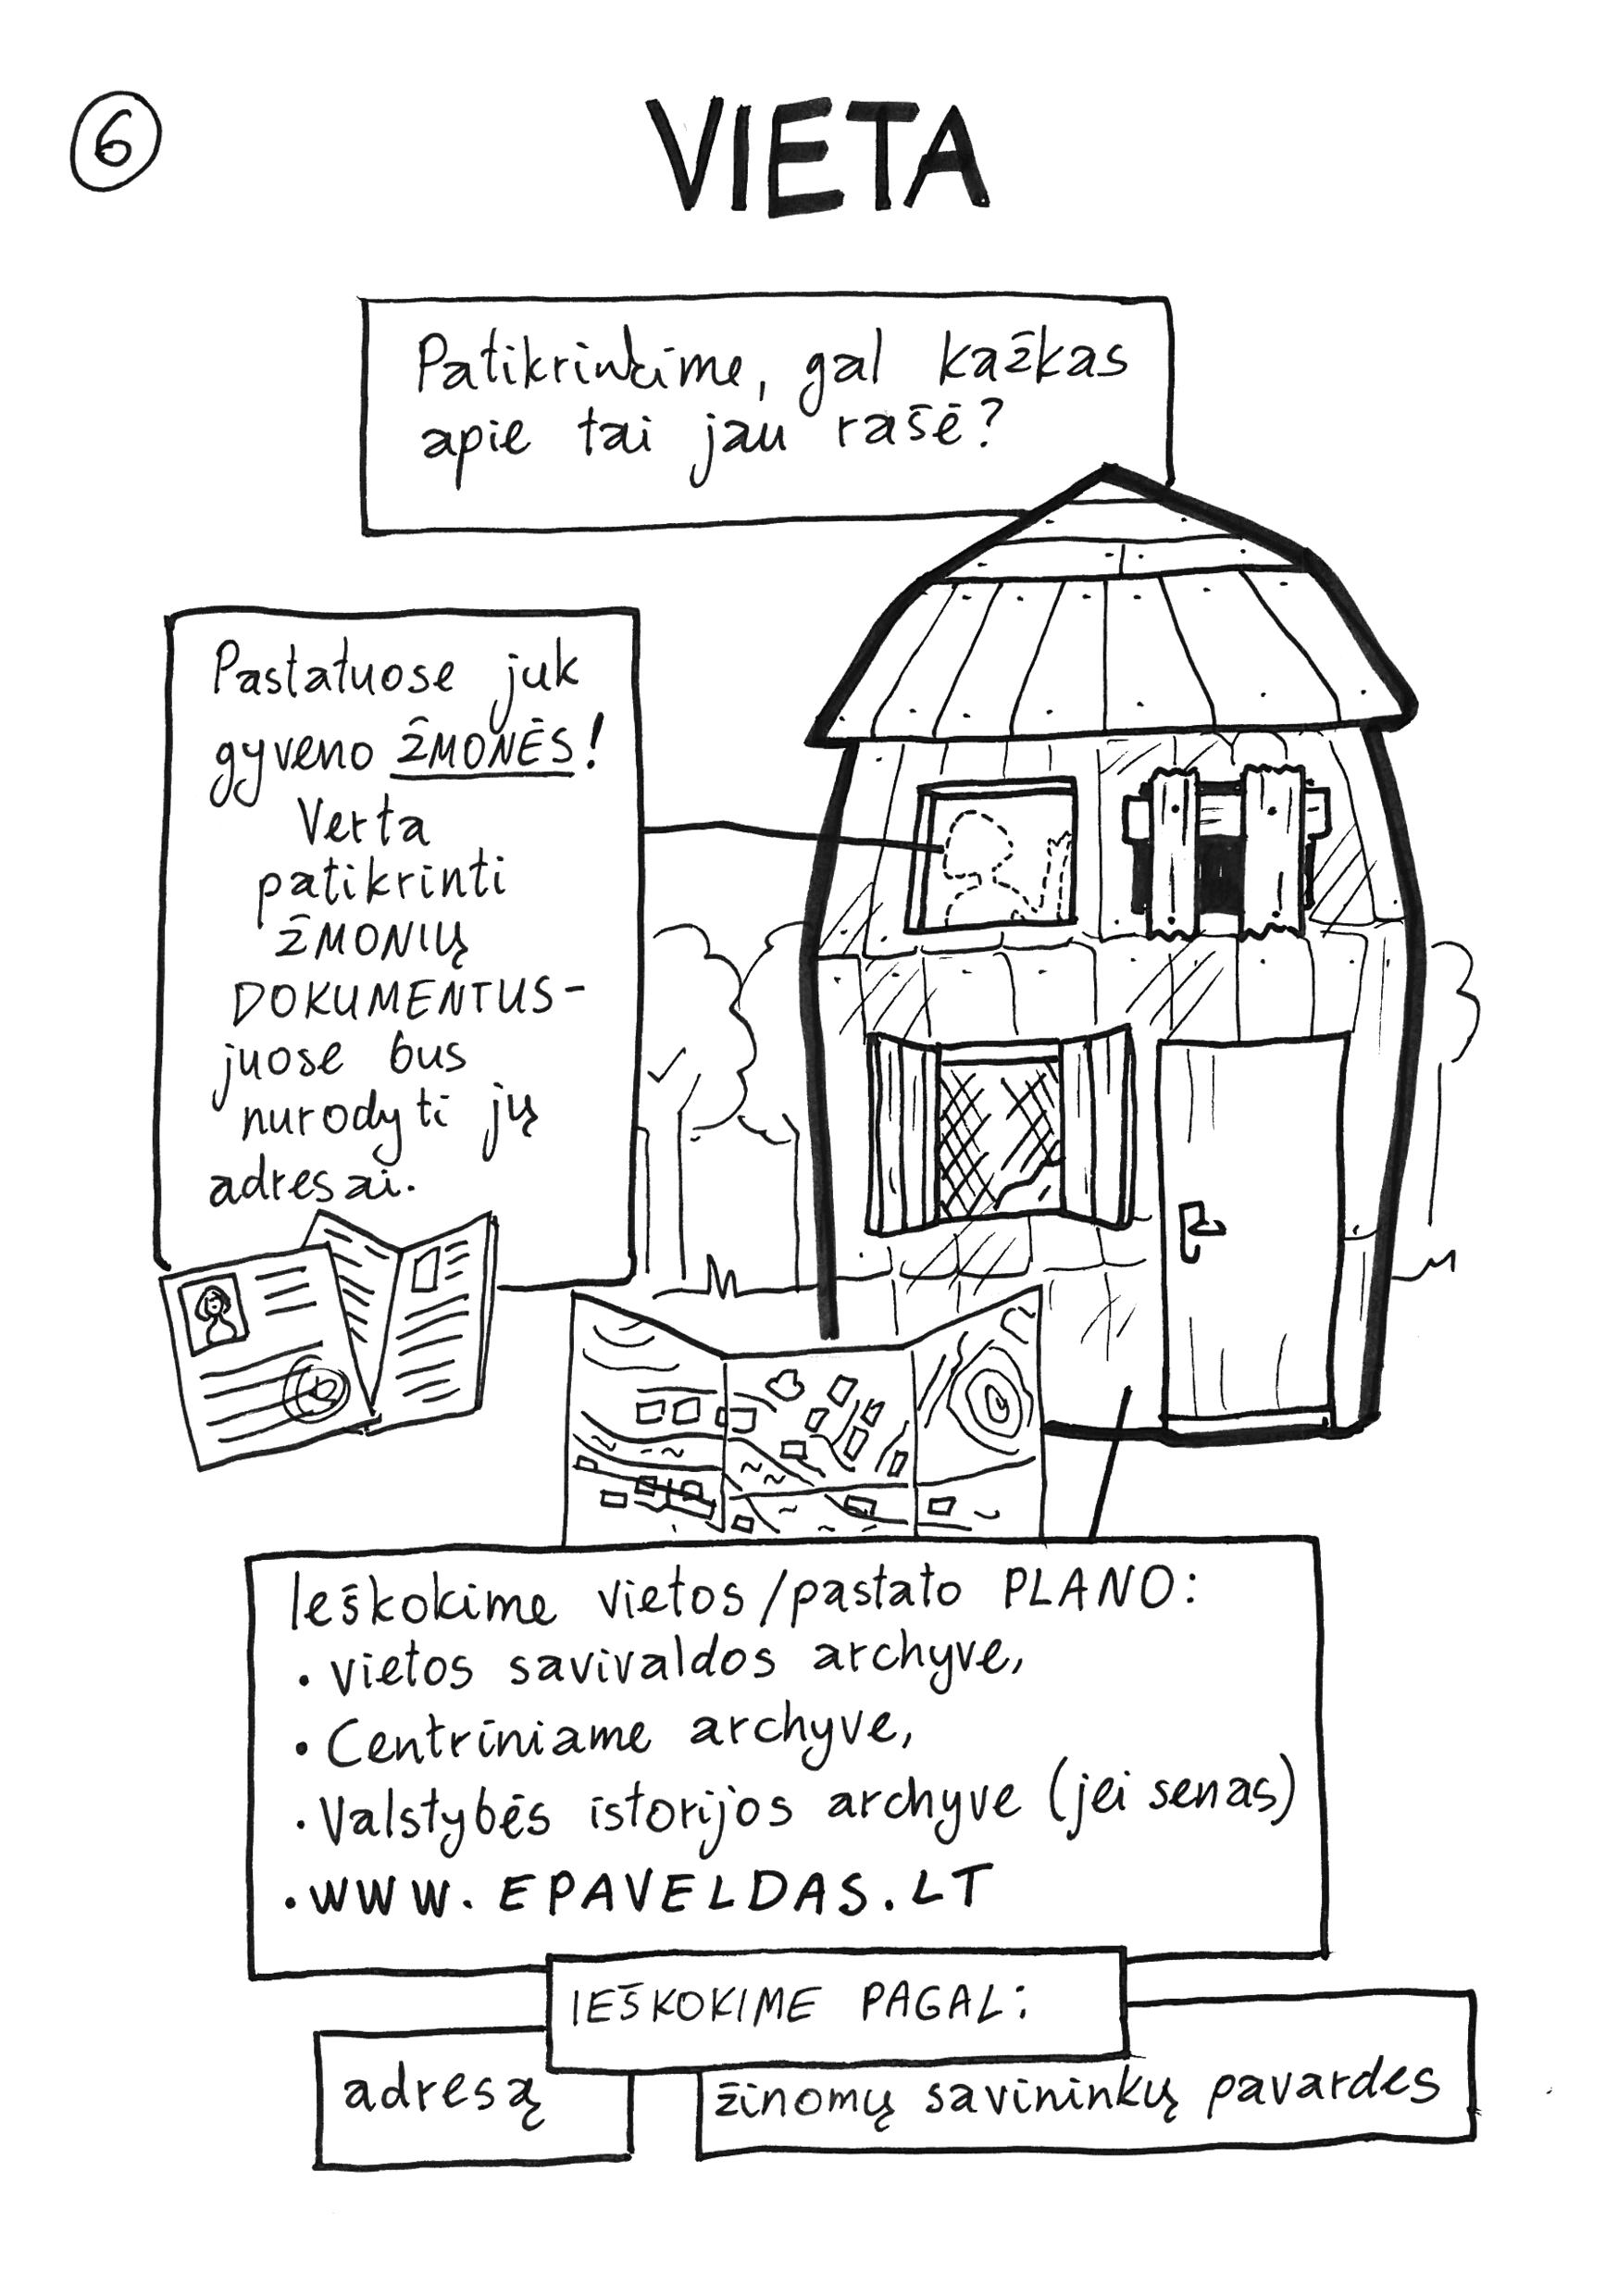 6
VIETA
Patikrinkime, gal kažkas
apie tai jau rašė?
Pastatuose juk
gyveno ŽMONĖS!
Verta
patikrinti
ŽMONIŲ
DOKUMENTUS-
juose bus
nurodyti jų
adresai.
Ieškokime vietos/pastato PLANO:
• vietos savivaldos archyve,
• Centriniame archyve,
• Valstybės istorijos archyve (jei senas)
• WWW.EPAVELDAS.LT
IEŠKOKIME PAGAL:
adresą
žinomų savininkų pavardes